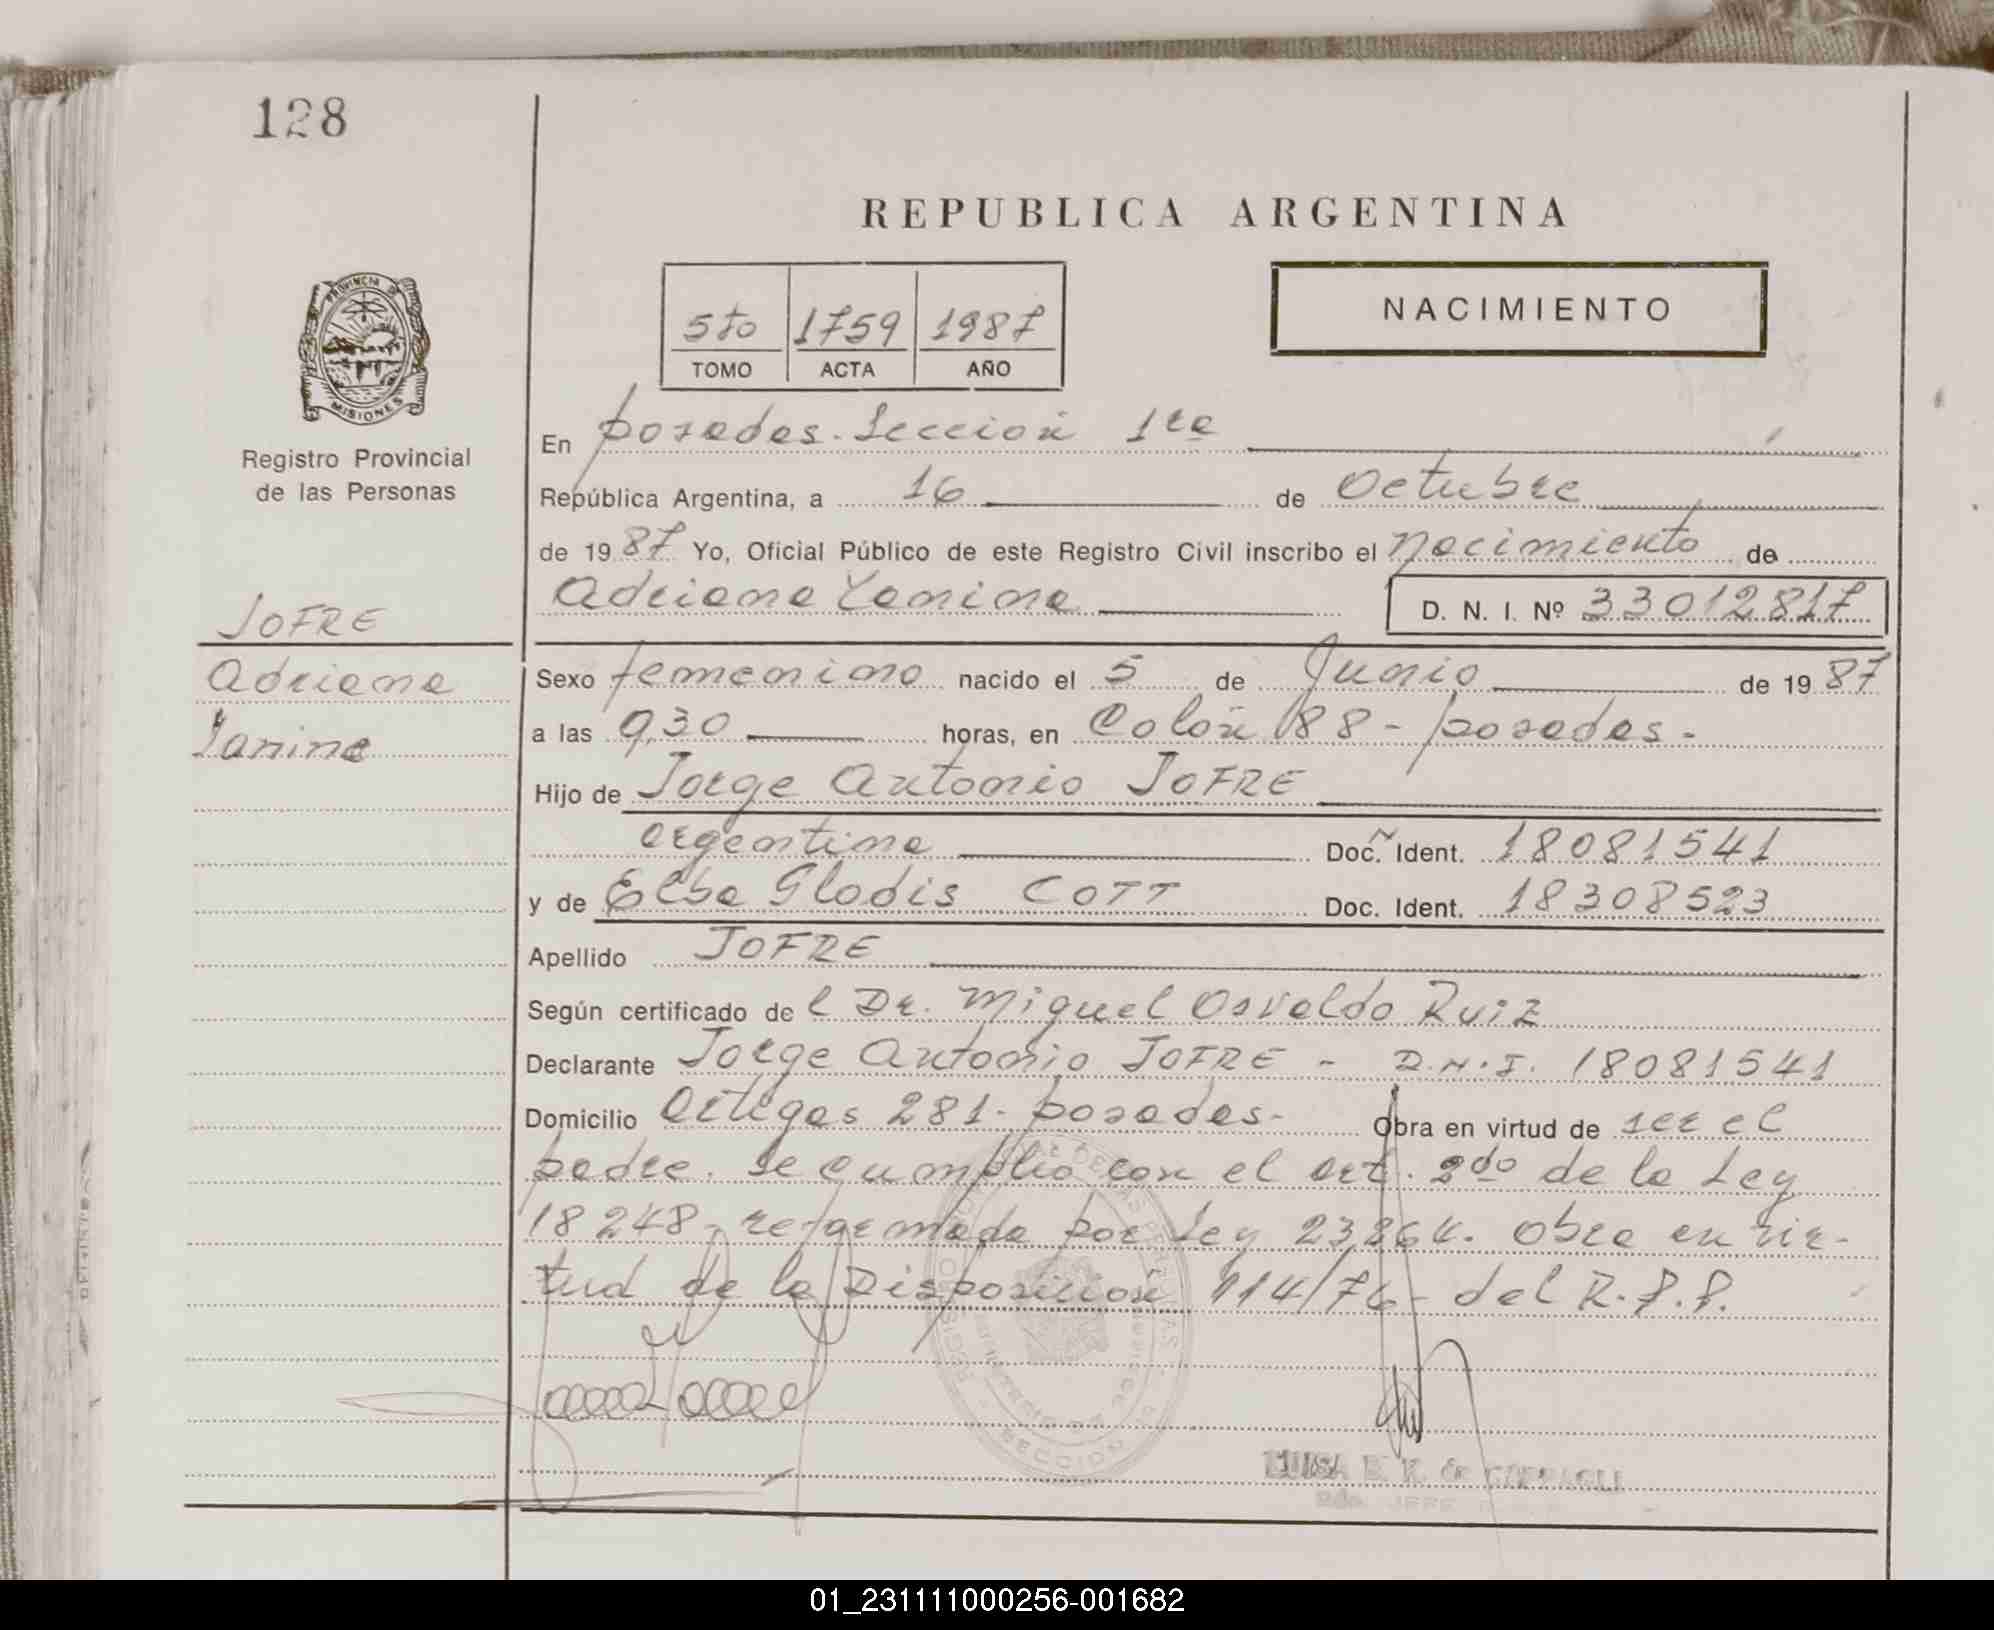 128
REPUBLICA ARGENTINA
5to 1759 1987
TOMO ACTA AÑO
NACIMIENTO
PROVINCIA DE
MISIONES
Registro Provincial
de las Personas
JOFRE
Adriana
Yanina
En Posadas. Sección 1ra
República Argentina, a 16 de Octubre
de 1987 Yo, Oficial Público de este Registro Civil inscribo el Nacimiento de
Adriana Yanina D. N. I. Nº 33012817
Sexo femenino nacido el 5 de Junio de 1987
a las 9,30 horas, en Colón 188 - Posadas -
Hijo de Jorge Antonio JOFRE
argentina Doc. Ident. 18081541
y de Elba Gladis COTT Doc. Ident. 18308523
Apellido JOFRE
Según certificado del Dr. Miguel Osvaldo Ruiz
Declarante Jorge Antonio JOFRE - D.N.I. 18081541
Domicilio Artigas 281 - Posadas - Obra en virtud de ser el
padre. Se cumplió con el art. 2do de la Ley
18248, reformada por Ley 23264. Obra en vir-
tud de la Disposición 114/76 - del R.P.P.
LUISA
01_231111000256-001682